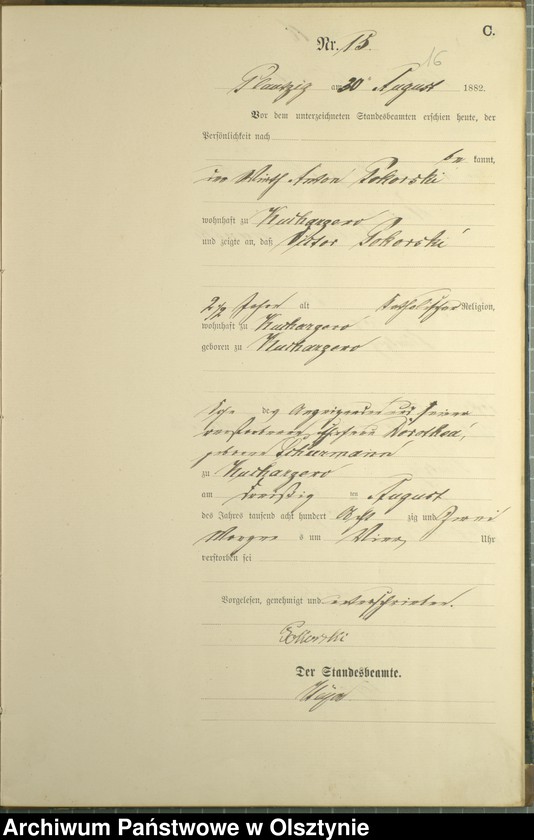 C.
Nr. 15.
16
Plautzig am 30 August 1882.
Vor dem unterzeichneten Standesbeamten erschien heute, der
Persönlichkeit nach
be kannt,
Wirth Anton Pokorski
wohnhaft zu Kucharzero
und zeigte an, daß Viktor Pokorski
2 1/2 Jahre alt katholischer Religion,
wohnhaft zu Kucharzero
geboren zu Kucharzero
Sohn des Anzeigenden und seiner
verstorbenen Ehefrau Dorothea,
geborene Schurmann
zu Kucharzero
am dreißig ten August
des Jahres tausend acht hundert Acht zig und Zwei
Morgens um Vier Uhr
verstorben sei
Vorgelesen, genehmigt und unterschrieben.
Pokorski
Der Standesbeamte.
Archiwum Państwowe w Olsztynie